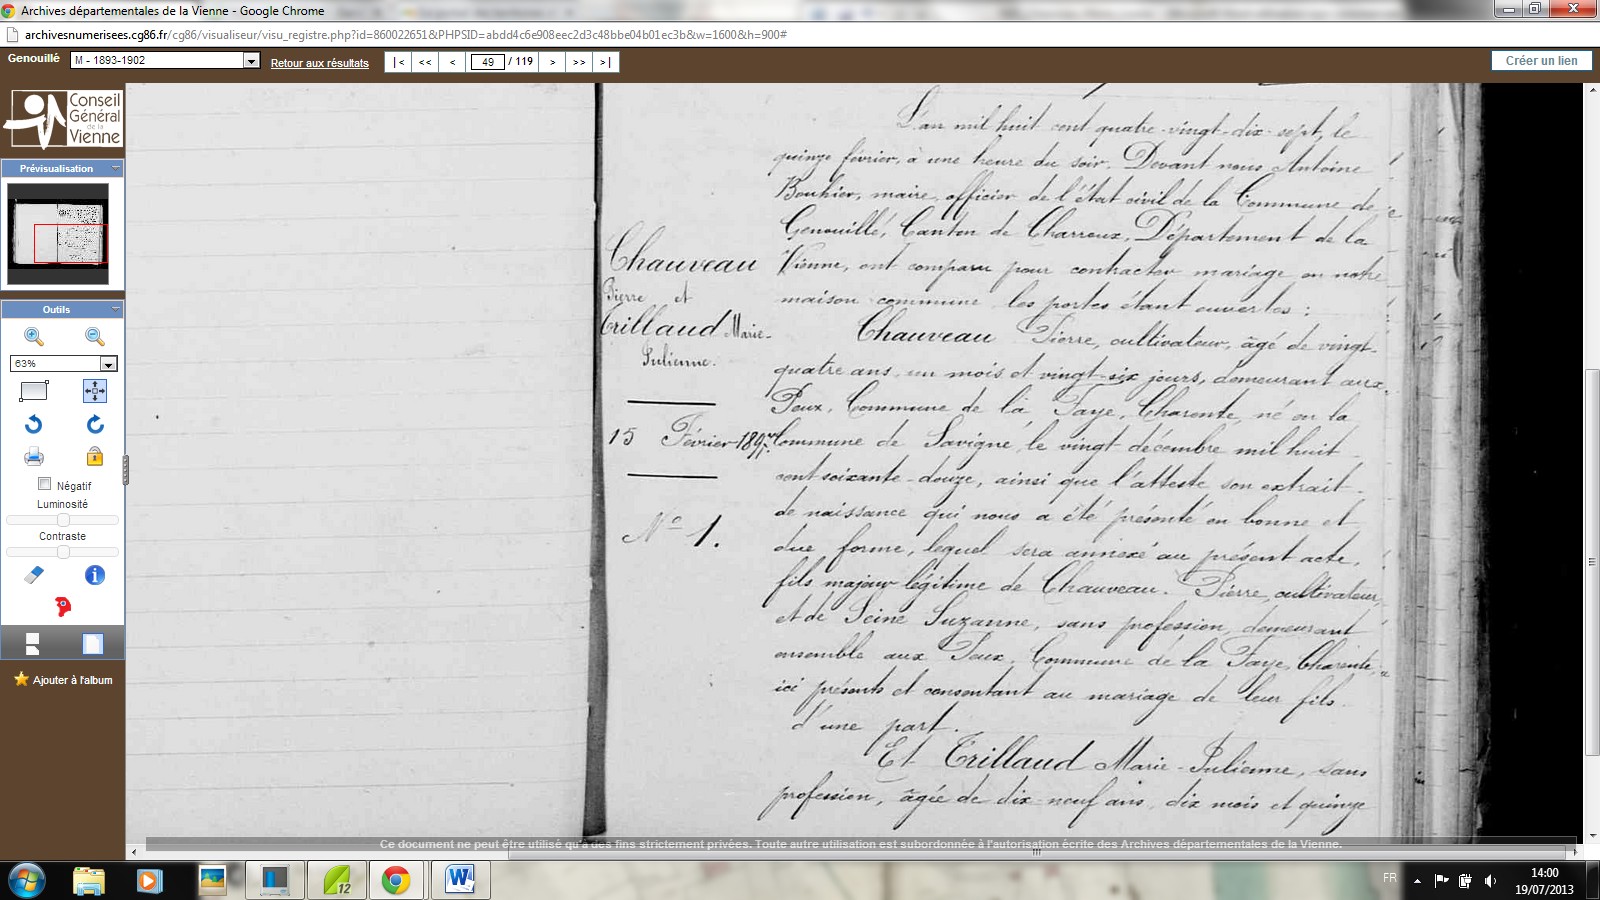 Archives départementales de la Vienne - Google Chrome
archivesnumerisees.cg86.fr/cg86/visualiseur/visu_registre.php?id=860022651&PHPSID=abdd4c6e908eec2d3c48bbe04b01ec3b&w=1600&h=900#
Genouillé
M - 1893-1902
Retour aux résultats
|< << < 49 / 119 > >> >|
Créer un lien
Conseil
Général
de la
Vienne
Prévisualisation
Outils
63%
Négatif
Luminosité
Contraste
Ajouter à l'album
Chauveau
Pierre et
Trillaud Marie-
Julienne.
15 Février 1897.
N° 1.
L'an mil huit cent quatre-vingt-dix-sept, le
quinze février, à une heure du soir. Devant nous Antoine
Bouhier, maire, officier de l'état civil de la Commune de
Genouillé, Canton de Charroux, Département de la
Vienne, ont comparu pour contracter mariage en notre
maison commune les portes étant ouvertes :
Chauveau Pierre, cultivateur, âgé de vingt-
quatre ans, un mois et vingt-six jours, demeurant aux
Peux, Commune de la Faye, Charente, né en la
Commune de Savigné, le vingt décembre mil huit
cent soixante-douze, ainsi que l'atteste son extrait
de naissance qui nous a été présenté en bonne et
due forme, lequel sera annexé au présent acte,
fils majeur légitime de Chauveau Pierre, cultivateur,
et de Seine Suzanne, sans profession, demeurant
ensemble aux Peux, Commune de la Faye, Charente,
ici présents et consentant au mariage de leur fils
d'une part.
Et Trillaud Marie-Julienne, sans
profession, âgée de dix-neuf ans, dix mois et quinze
Ce document ne peut être utilisé qu'à des fins strictement privées. Toute autre utilisation est subordonnée à l'autorisation écrite des Archives départementales de la Vienne.
12
FR
14:00
19/07/2013